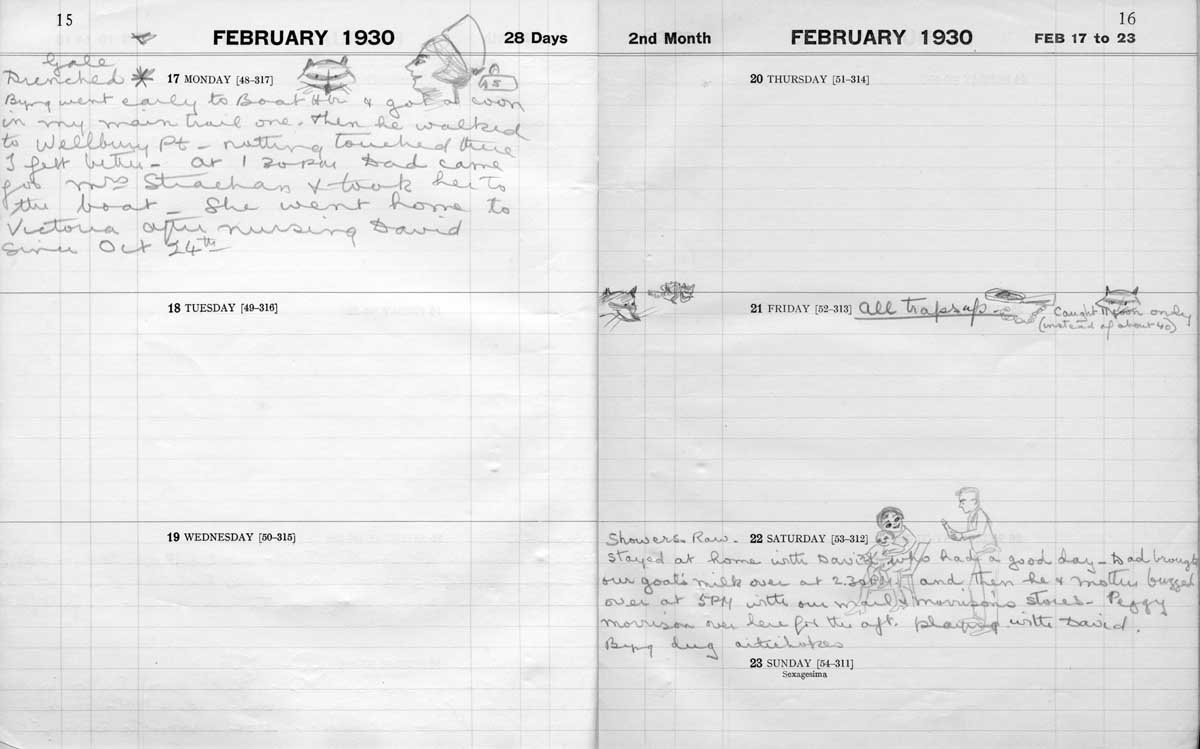 15
FEBRUARY 1930
28 Days
Gale
Drenched
17 MONDAY [48-317]
A 45
Byng went early to Boat Hbr & got a coon
in my main trail one. Then he walked
to Wellbury Pt - nothing touched there
I felt better - at 1 30 PM Dad came
for Mrs Strachan & took her to
the boat - She went home to
Victoria after nursing David
since Oct 24th
18 TUESDAY [49-316]
19 WEDNESDAY [50-315]
16
2nd Month
FEBRUARY 1930
FEB 17 to 23
20 THURSDAY [51-314]
21 FRIDAY [52-313] All traps up -
Caught 11 coon only
(instead of about 40)
Showers. Raw. 22 SATURDAY [53-312]
stayed at home with David, who had a good day - Dad brought
our goat's milk over at 2.30 PM and then he & mother buzzed
over at 5PM with our mail & Morrison's stores - Peggy
Morrison over here for the aft. playing with David.
Byng dug artichokes
23 SUNDAY [54-311]
Sexagesima